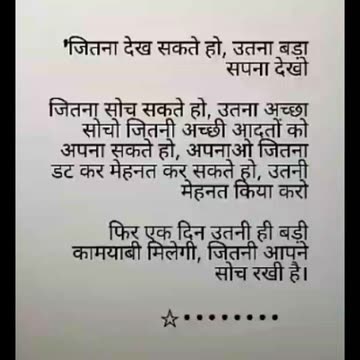 'जितना देख सकते हो, उतना बड़ा
सपना देखो
जितना सोच सकते हो, उतना अच्छा
सोचो जितनी अच्छी आदतों को
अपना सकते हो, अपनाओ जितना
डट कर मेहनत कर सकते हो, उतनी
मेहनत किया करो
फिर एक दिन उतनी ही बड़ी
कामयाबी मिलेगी, जितनी आपने
सोच रखी है।
☆••••••••